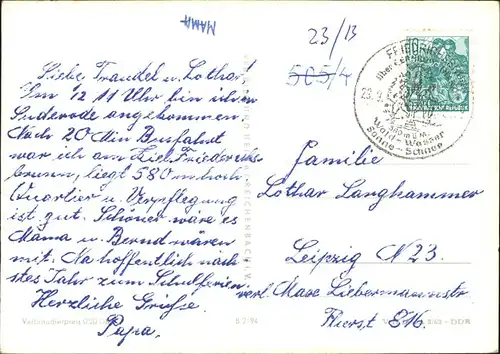 MAMA
23/13
505/4
Liebe Traudel u. Lothar!
Um 12 11 Uhr bin ich in
Suderode angekommen.
Nach 20 Min Busfahrt
war ich am Ziel. Friedrichs-
brunn, liegt 580 m hoch.
Quartier u. Verpflegung
ist gut. Schöner wäre es
Mama u. Bernd wären
mit. Na hoffentlich näch-
stes Jahr zum Schulferien.
Herzliche Grüße
Papa.
FRIEDRICHSBRUNN
über
23.
580 m ü. M.
Wald-Wasser
Sonne-Schnee
Familie
Lothar Langhammer
Leipzig N 23.
verl. Max Liebermannstr
Fierst E 16.
Verbraucherpreis
B 2/94
DDR